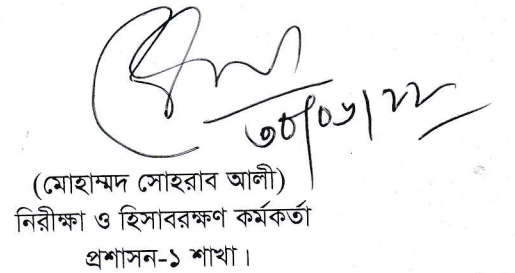 ৩০/০৬/২২
(মোহাম্মদ সোহরাব আলী)
নিরীক্ষা ও হিসাবরক্ষণ কর্মকর্তা
প্রশাসন-১ শাখা।